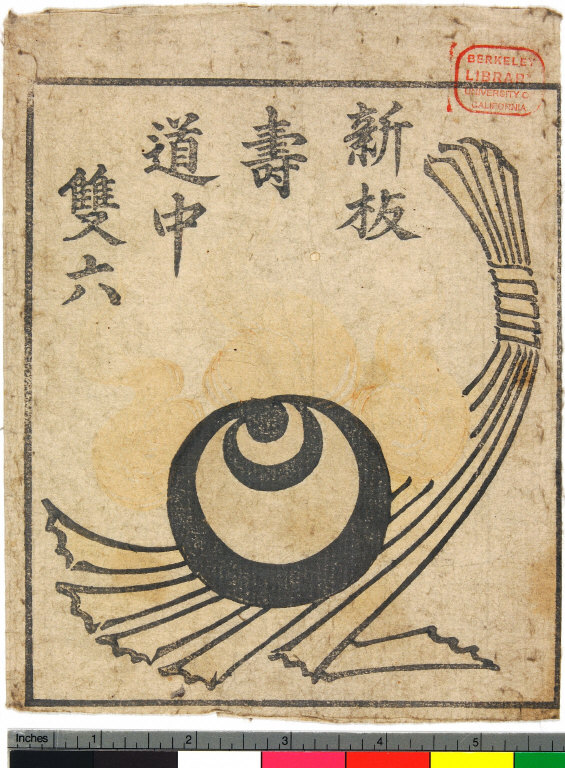 新板
壽
道中
雙六
BERKELEY
LIBRARY
UNIVERSITY OF
CALIFORNIA
Inches
1
2
3
4
5